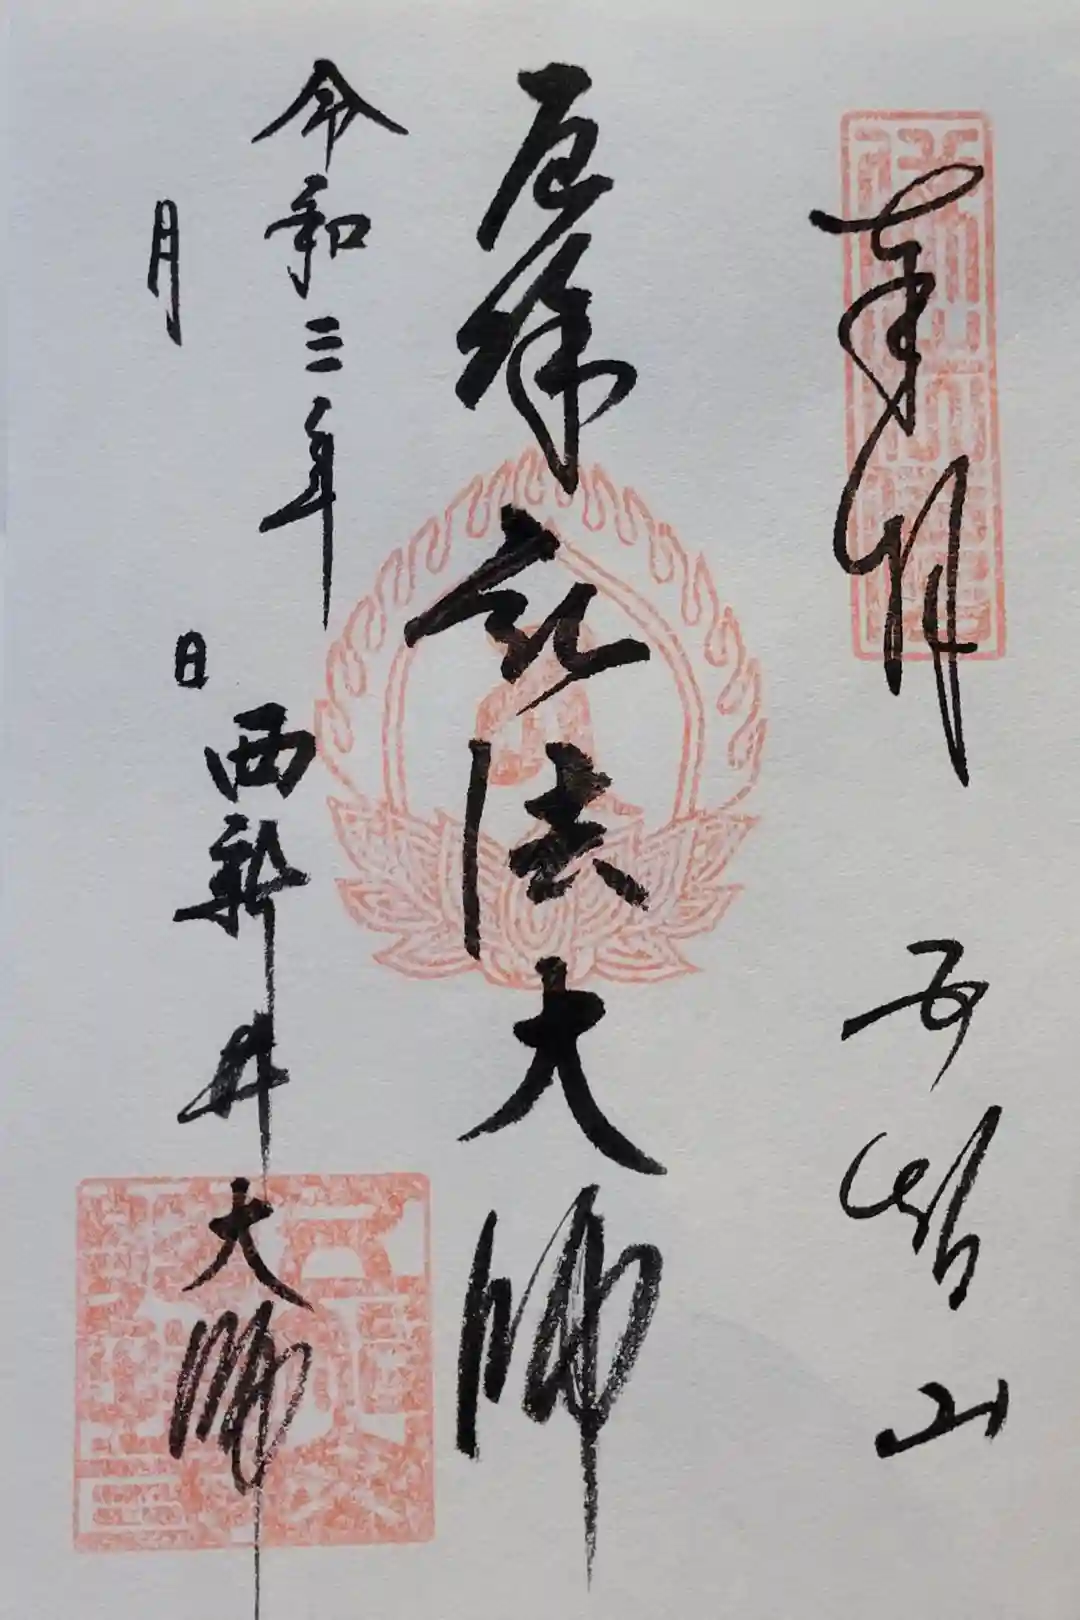 奉拝 五智山
厄除 弘法大師
令和三年
月 日
西新井大師